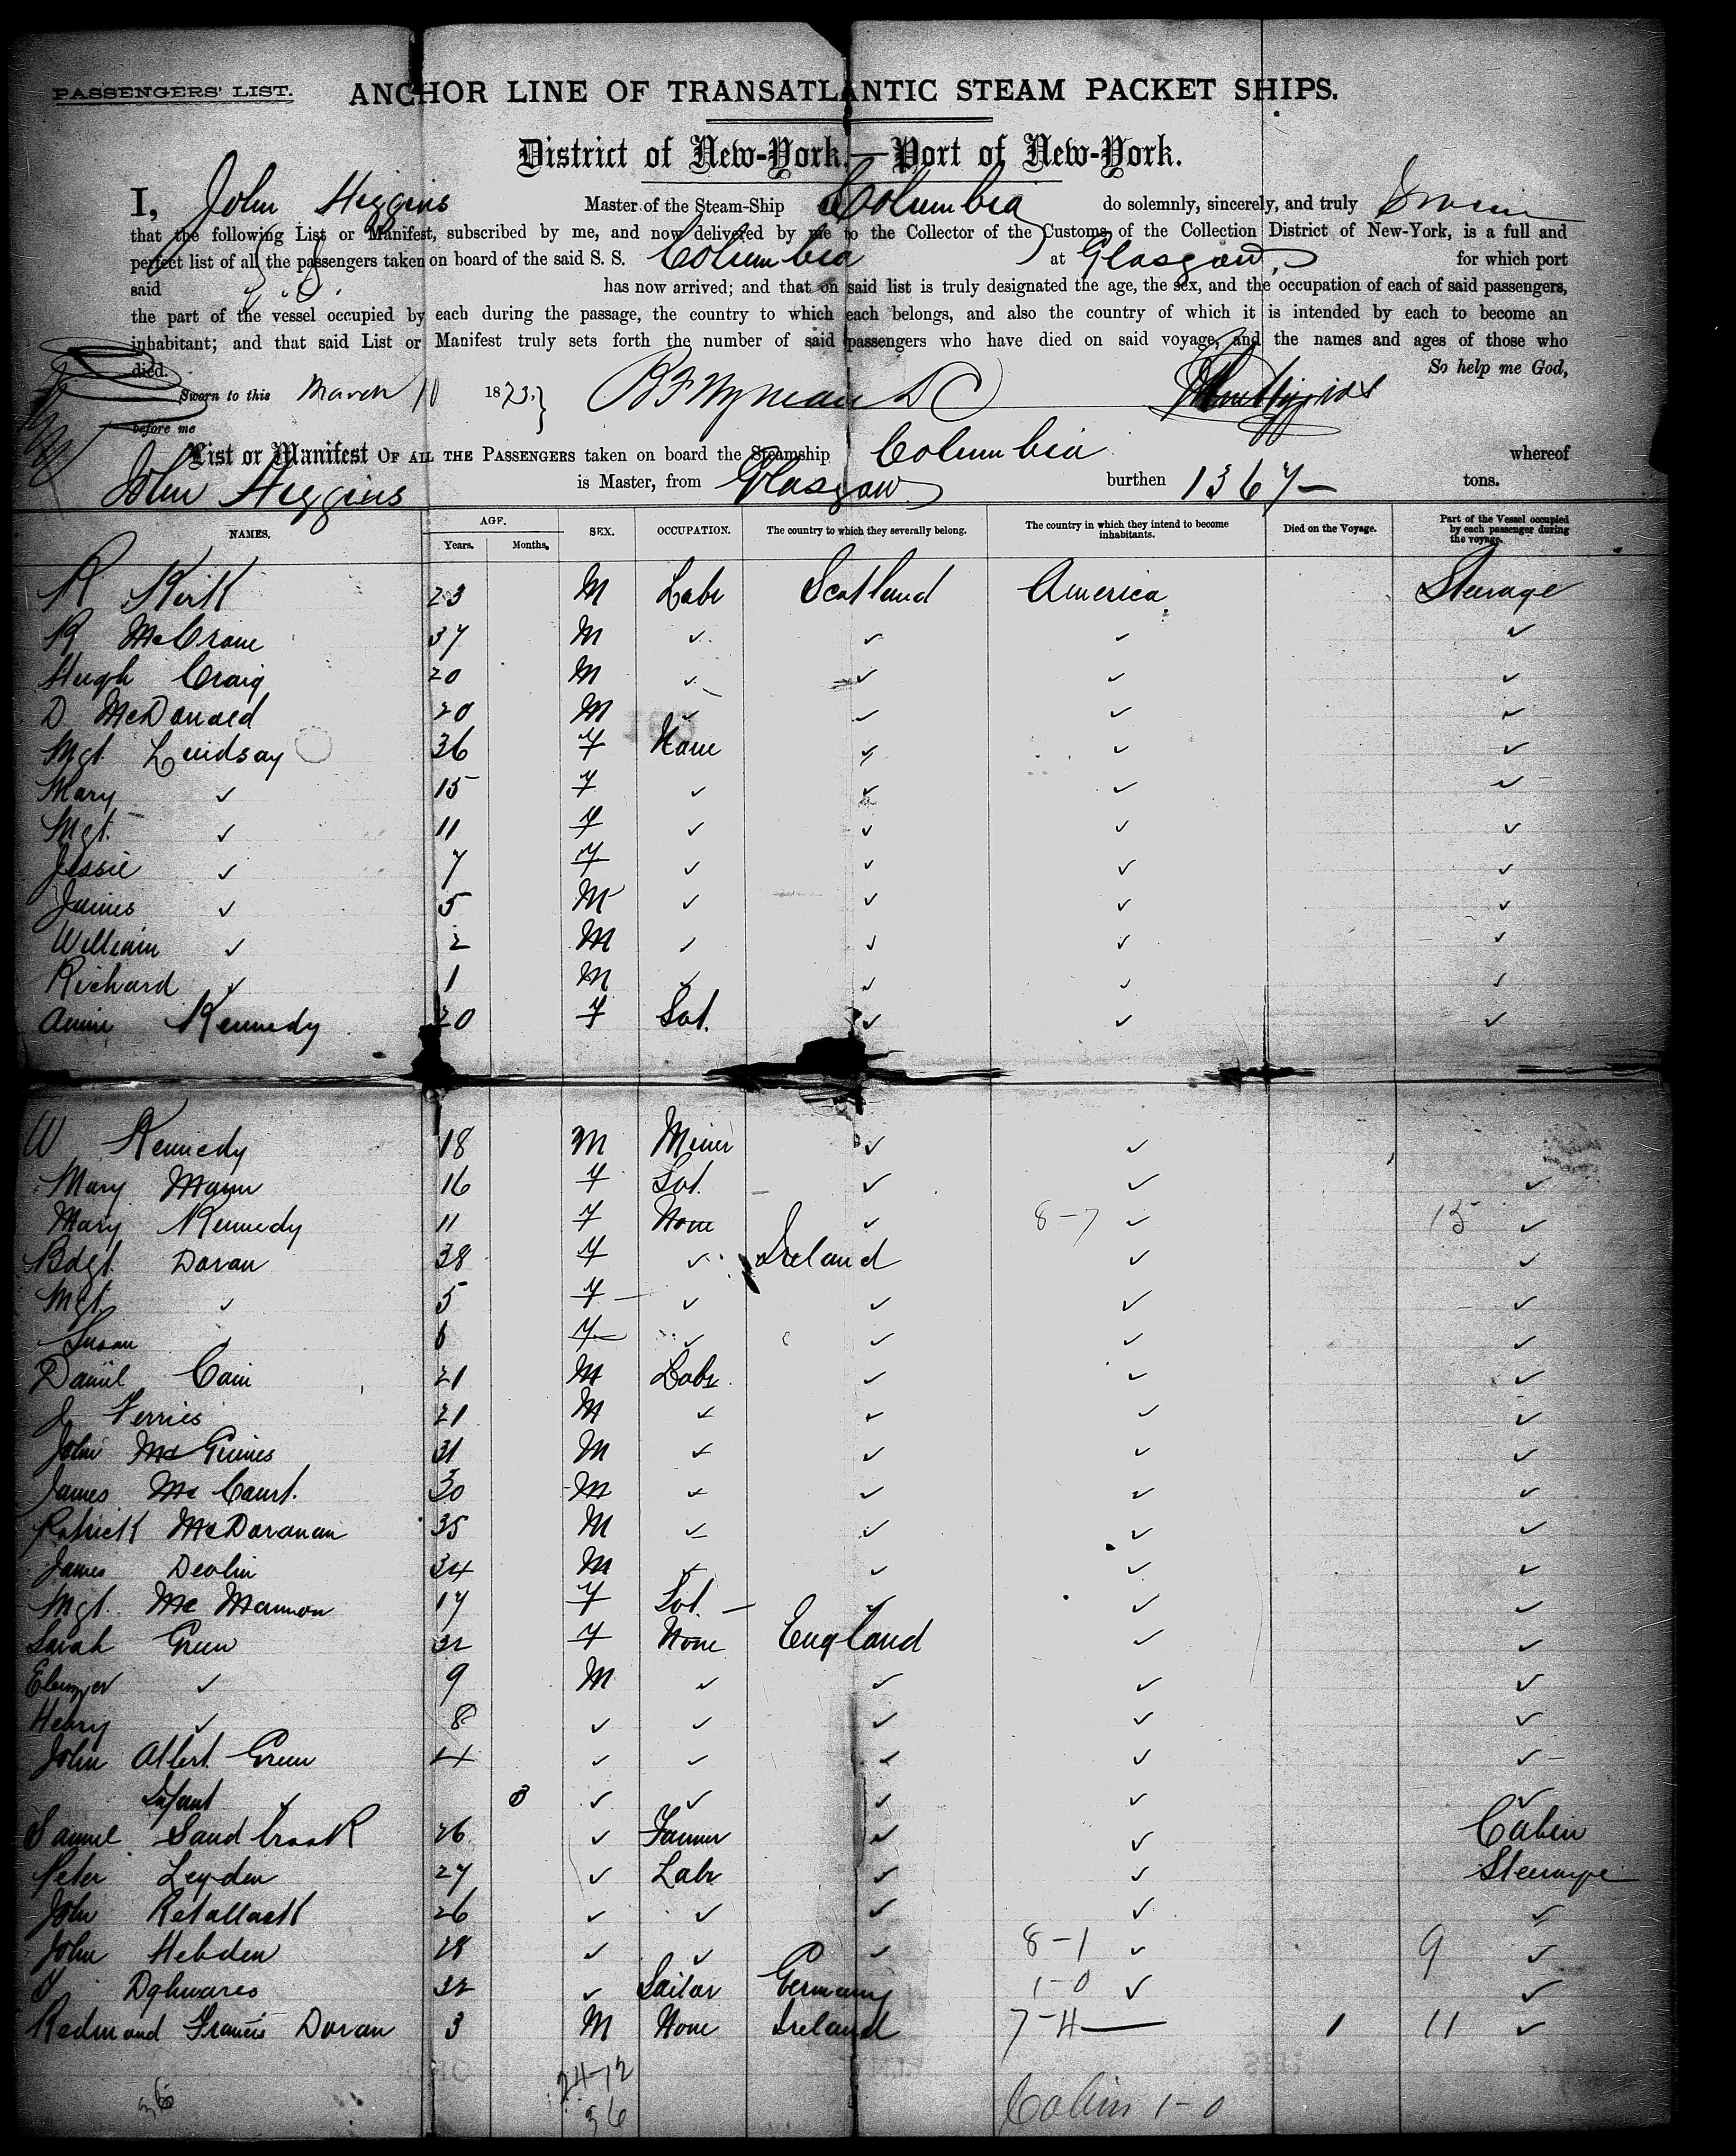 PASSENGERS' LIST. ANCHOR LINE OF TRANSATLANTIC STEAM PACKET SHIPS.
District of New-York.—Port of New-York.
I, John Higgins Master of the Steam-Ship Columbia do solemnly, sincerely, and truly
that the following List or Manifest, subscribed by me, and now delivered by me to the Collector of the Customs of the Collection District of New-York, is a full and
perfect list of all the passengers taken on board of the said S. S. Columbia at Glasgow, for which port
said has now arrived; and that on said list is truly designated the age, the sex, and the occupation of each of said passengers,
the part of the vessel occupied by each during the passage, the country to which each belongs, and also the country of which it is intended by each to become an
inhabitant; and that said List or Manifest truly sets forth the number of said passengers who have died on said voyage, and the names and ages of those who
died. So help me God,
Sworn to this March 10 1873. } John Higgins
before me
List or Manifest OF ALL THE PASSENGERS taken on board the Steamship Columbia whereof
John Higgins is Master, from Glasgow burthen 1367 tons.
NAMES. AGE. SEX. OCCUPATION. The country to which they severally belong. The country in which they intend to become inhabitants. Died on the Voyage. Part of the Vessel occupied by each passenger during the voyage.
Years. Months.
R Kirk 23 M Labr Scotland America Steerage
R McCrane 37 M ✓ ✓ ✓ ✓
Hugh Craig 20 M ✓ ✓ ✓ ✓
D McDonald 20 M ✓ ✓ ✓ ✓
Mgt. Lindsay 36 F None ✓ ✓ ✓
Mary ✓ 15 F ✓ ✓ ✓ ✓
Mgt. ✓ 11 F ✓ ✓ ✓ ✓
Jessie ✓ 7 F ✓ ✓ ✓ ✓
James ✓ 5 M ✓ ✓ ✓ ✓
William ✓ 2 M ✓ ✓ ✓ ✓
Richard ✓ 1 M ✓ ✓ ✓ ✓
Annie Kennedy 20 F Svt. ✓ ✓ ✓
W Kennedy 18 M Miner ✓ ✓
Mary Mann 16 F Svt. ✓ ✓ ✓
Mary Kennedy 11 F None ✓ 8-7 ✓ 15 ✓
Bdgt. Doran 38 F ✓ Ireland ✓ ✓
Mgt. ✓ 5 F ✓ ✓ ✓ ✓
Susan 6 F ✓ ✓ ✓ ✓
Daniel Cain 21 M Labr ✓ ✓ ✓
J Ferries 21 M ✓ ✓ ✓ ✓
John McGuines 31 M ✓ ✓ ✓ ✓
James McCourt. 30 M ✓ ✓ ✓ ✓
Patrick McDoranan 35 M ✓ ✓ ✓ ✓
James Devlin 34 M ✓ ✓ ✓ ✓
Mgt. McMannon 17 F Svt. ✓ ✓ ✓
Sarah Green 32 F None England ✓ ✓
Ebenezer ✓ 9 M ✓ ✓ ✓ ✓
Henry ✓ 8 ✓ ✓ ✓ ✓ ✓
John Albert Green 4 ✓ ✓ ✓ ✓ ✓
Infant ✓ 3 ✓ ✓ ✓ ✓ ✓
Samuel Sandbrook 26 ✓ Farmer ✓ ✓ Cabin
Peter Leyden 27 ✓ Labr ✓ ✓ Steerage
John Retallack 26 ✓ ✓ ✓ ✓ ✓
John Hebden 28 ✓ ✓ ✓ 8-1 ✓ 9 ✓
32 ✓ Sailor Germany 1-0 ✓ ✓
Redmond Francis Doran 3 M None Ireland 7-4 1 11 ✓
24-12
36 36 Cabin 1-0